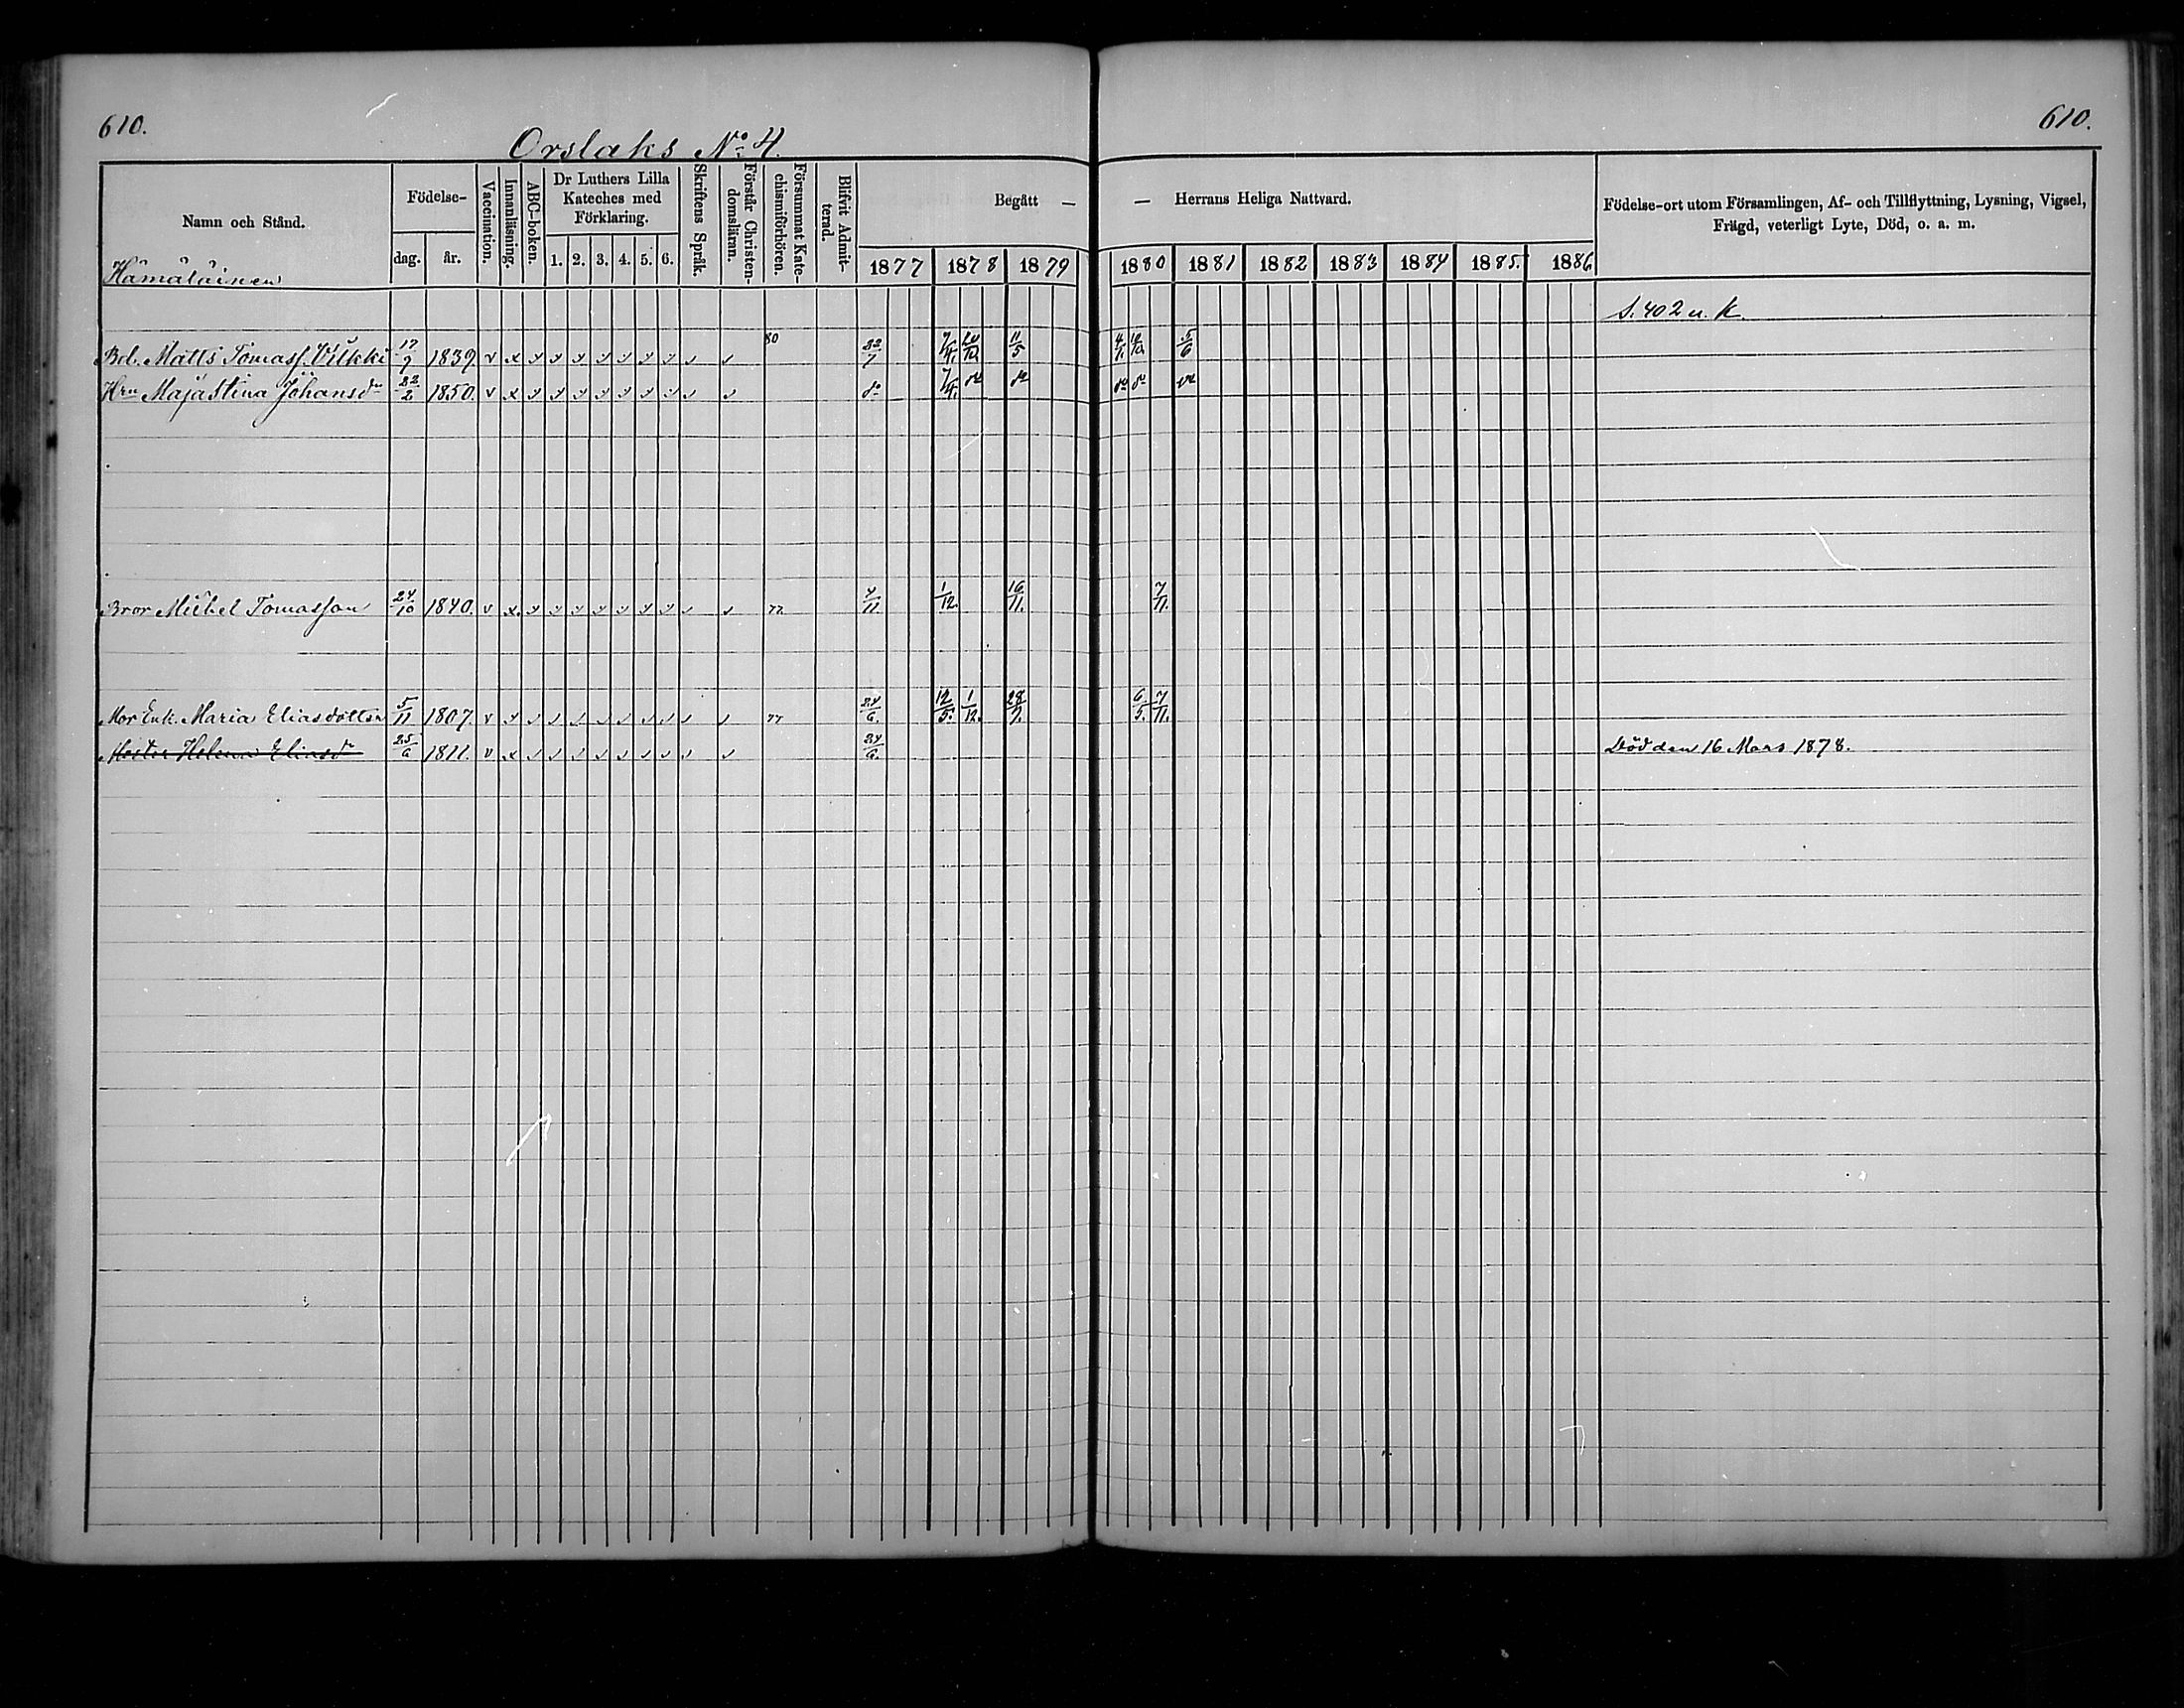 610.
610.
Orslaks No. 4.
Namn och Stånd.
Födelse-
dag. år.
Vaccination.
Innanläsning.
ABC-boken.
Dr Luthers Lilla
Kateches med
Förklaring.
1. 2. 3. 4. 5. 6.
Skriftens Språk.
Förstår Christen-
domsläran.
Försummat Kate-
chismiförhören.
Blifvit Admit-
terad.
Begått —
— Herrans Heliga Nattvard.
1877 1878 1879 1880 1881 1882 1883 1884 1885. 1886
Födelse-ort utom Församlingen, Af- och Tillflyttning, Lysning, Vigsel,
Frägd, veterligt Lyte, Död, o. a. m.
Hämäläinen
S. 402 u. K.
Matts Tomass. 17/7 1839 v x 80 22/7 7/4. 20/10 11/5 5/6
Hru Majastina Johansdr 22/2 1850. v x do 7/4. do do do do do
Bror Michel Tomasson 24/10 1840. v x 77 4/11 1/12. 16/11. 7/11.
Mor Enk. Maria Eliasdotter 5/11 1807. v 77 24/6 12/5. 1/12. 28/9. 6/5. 7/11.
Helena Eliasdr 25/6 1811. v x 24/6. Död den 16 Mars 1878.